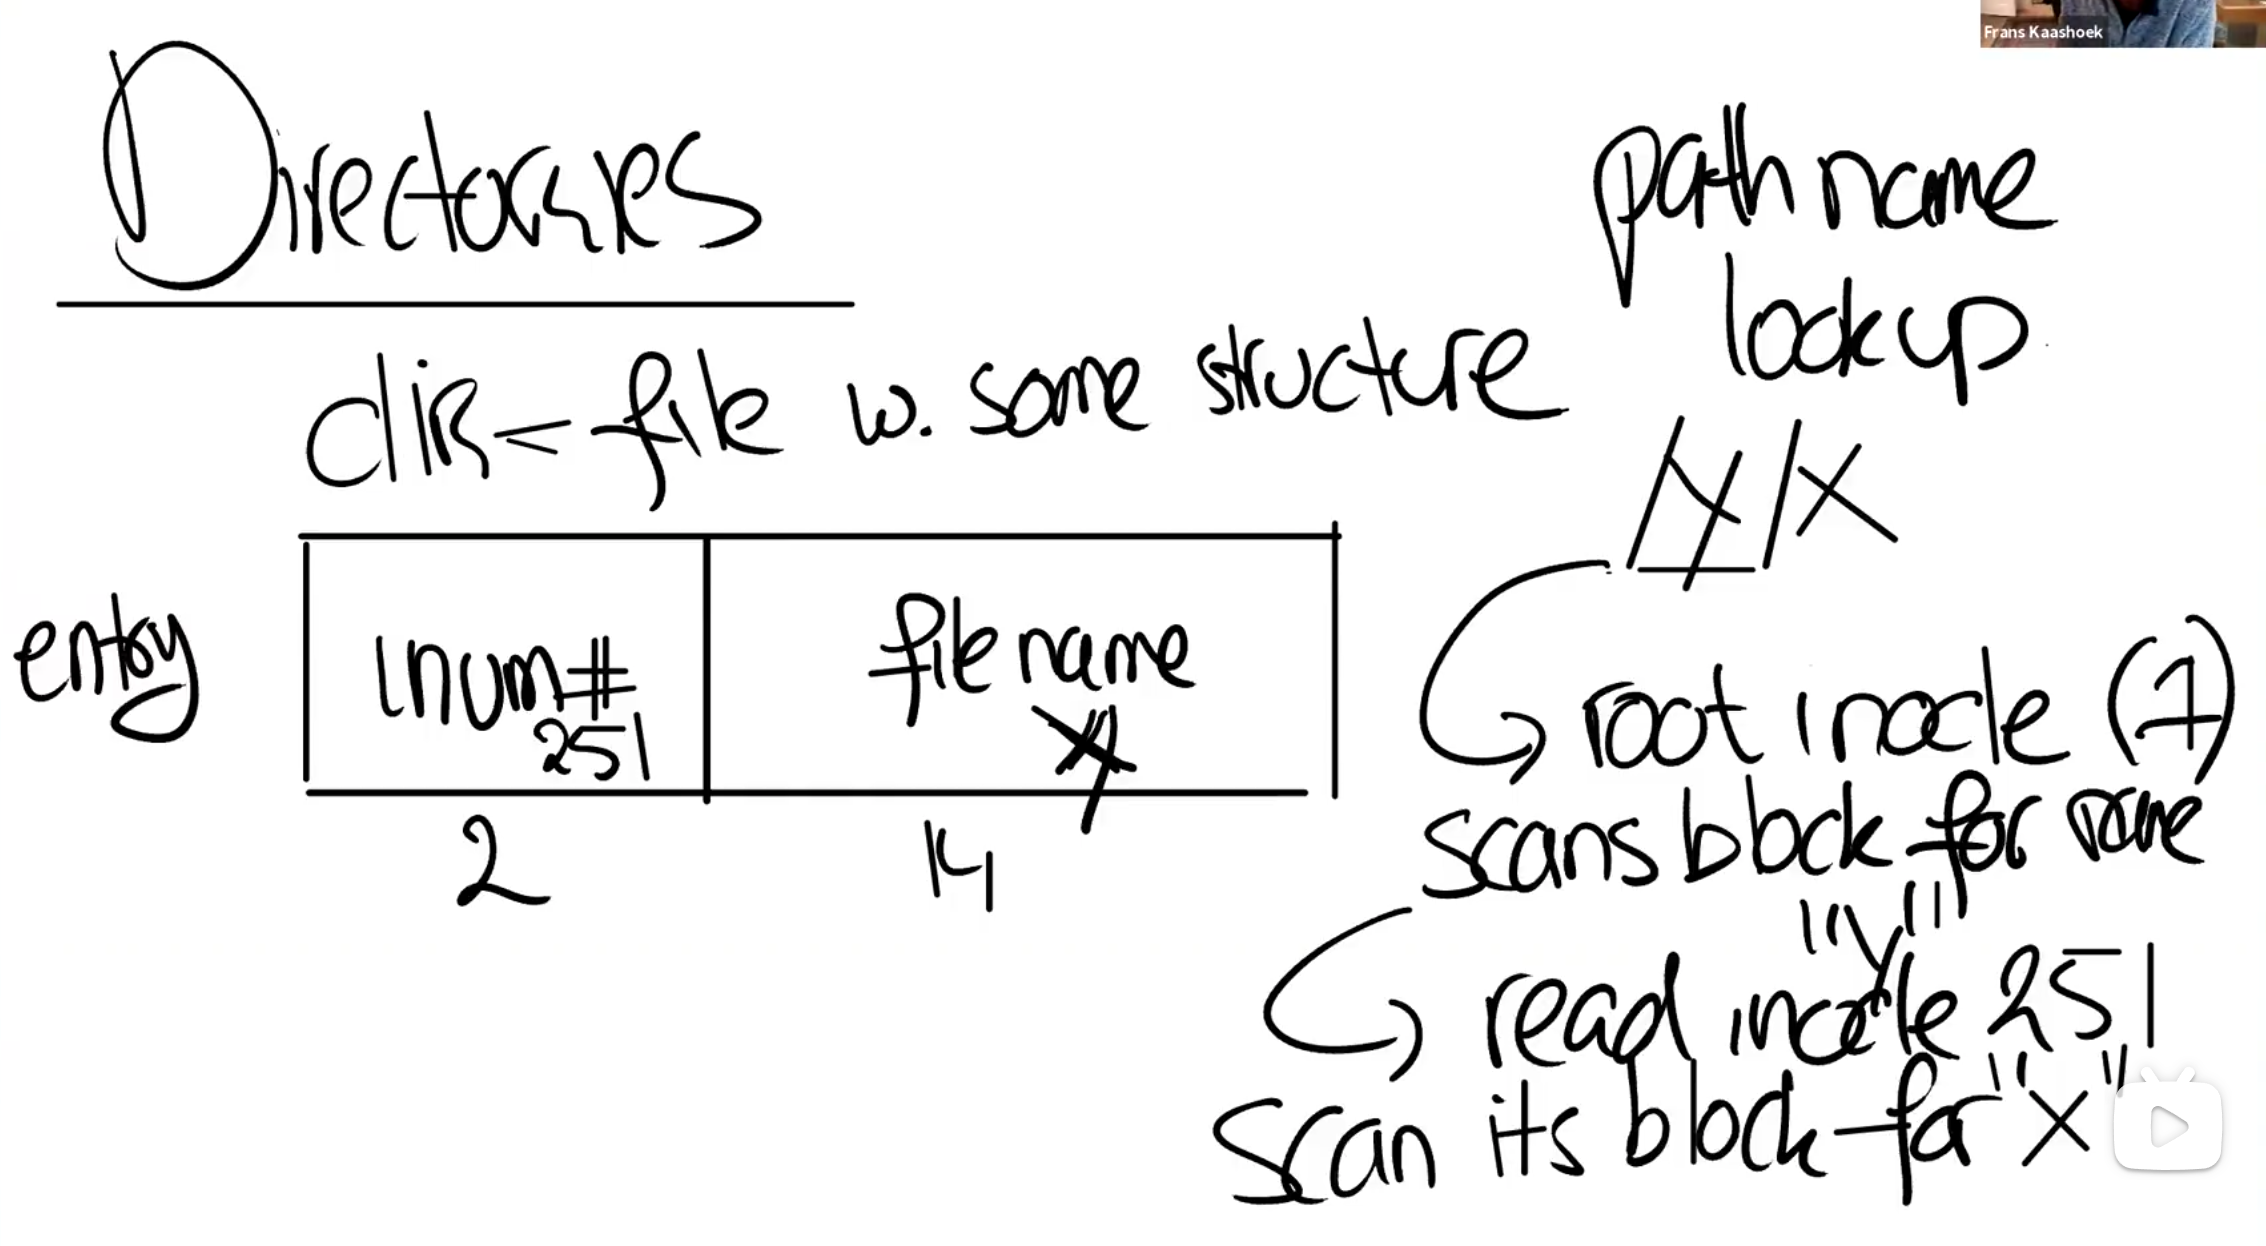 Frans Kaashoek
Directories
dir ← file w. some structure
entry
inum#
251
filename
y
2
14
pathname
lookup
/y/x
root inode (1)
scans block for name
"y"
read inode 251
scan its block for "x"